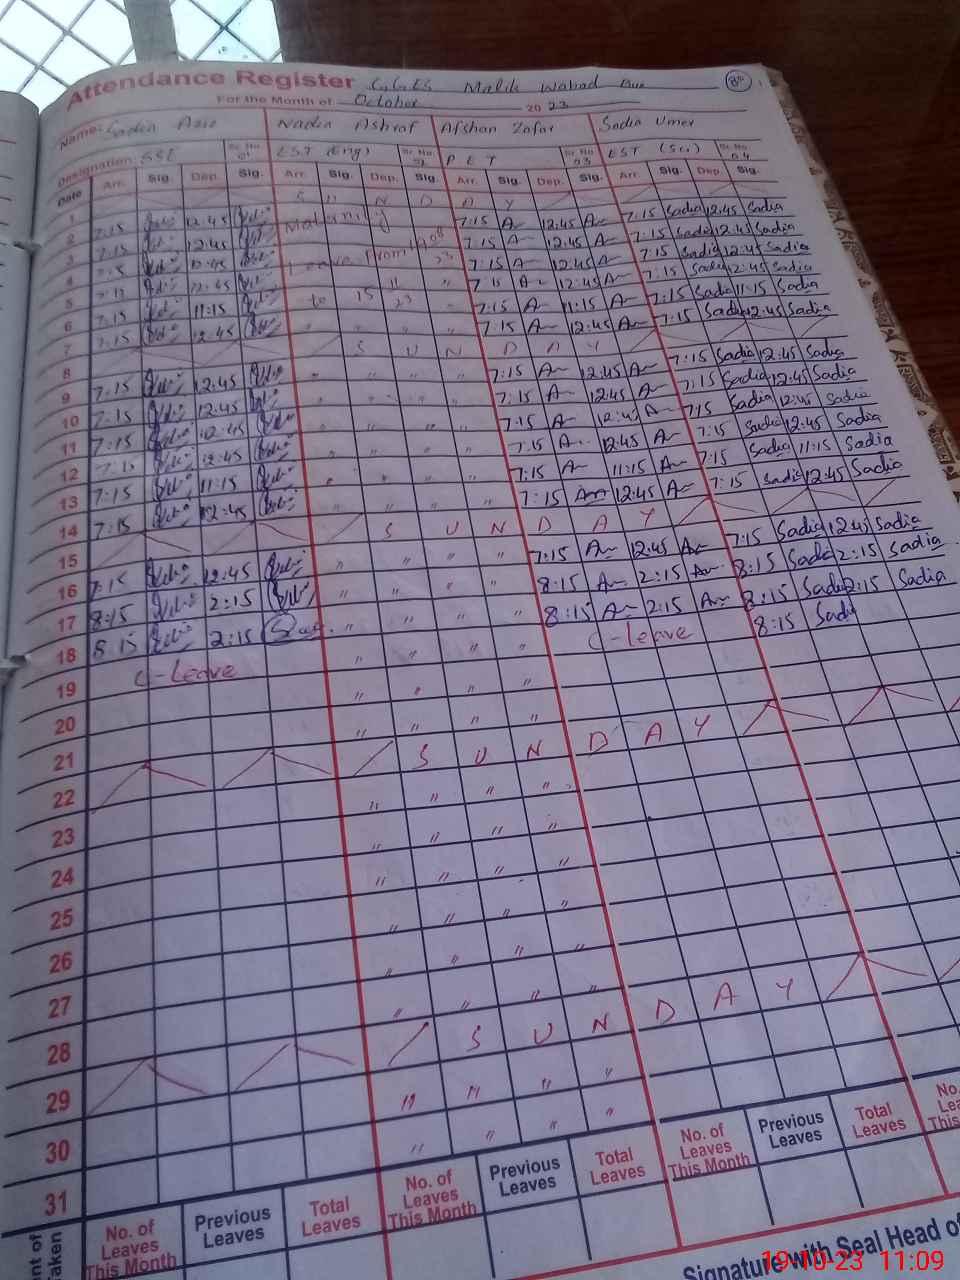 Attendance Register G.G.E.S Malik Wahad
For the Month of October 2023
Name: Sadia Aziz Nadia Ashraf Afshan Zafar Sadia Umer
Designation: SSE Sr. No. 01 EST (Eng) Sr. No. 02 P E T Sr. No. 03 EST (Sci) Sr. No. 04
Date Arr. Sig. Dep. Sig. Arr. Sig. Dep. Sig. Arr. Sig. Dep. Sig. Arr. Sig. Dep. Sig.
1 S U N D A Y
2 7:15 12:45 Maternity 7:15 A 12:45 A 7:15 Sadia 12:45 Sadia
3 7:15 12:45 7:15 A 12:45 A 7:15 Sadia 12:45 Sadia
4 7:15 12:45 Leave From 7:15 A 12:45 A 7:15 Sadia 12:45 Sadia
5 7:15 12:45 " 7:15 A 12:45 A 7:15 Sadia 12:45 Sadia
6 7:15 11:15 to 15 11 23 7:15 A 11:15 A 7:15 Sadia 11:15 Sadia
7 7:15 12:45 " " " " 7:15 A 12:45 A 7:15 Sadia 12:45 Sadia
8 S U N D A Y
9 7:15 12:45 " " " " 7:15 A 12:45 A 7:15 Sadia 12:45 Sadia
10 7:15 12:45 " " " " 7:15 A 12:45 A 7:15 Sadia 12:45 Sadia
11 7:15 12:45 " " " " 7:15 A 12:45 A 7:15 Sadia 12:45 Sadia
12 7:15 12:45 " " " " 7:15 A 12:45 A 7:15 Sadia 12:45 Sadia
13 7:15 11:15 " " " " 7:15 A 11:15 A 7:15 Sadia 11:15 Sadia
14 7:15 12:45 " " " " 7:15 A 12:45 A 7:15 Sadia 12:45 Sadia
15 S U N D A Y
16 7:15 12:45 " " " " 7:15 A 12:45 A 7:15 Sadia 12:45 Sadia
17 8:15 2:15 " " " " 8:15 A 2:15 A 8:15 Sadia 2:15 Sadia
18 8:15 2:15 " " " " 8:15 A 2:15 A 8:15 Sadia 2:15 Sadia
19 C-Leave " " " " C-leave 8:15 Sadi
20 " " " "
21 " " " "
22 S U N D A Y
23 " " " "
24 " " " "
25 " " " "
26 " " " "
27 " " " "
28 " " " "
29 S U N D A Y
30 " " " "
31 " " " "
No. of Leaves This Month Previous Leaves Total Leaves No. of Leaves This Month Previous Leaves Total Leaves No. of Leaves This Month Previous Leaves Total Leaves No. Leaves This
Signature with Seal Head of
19-10-23 11:09